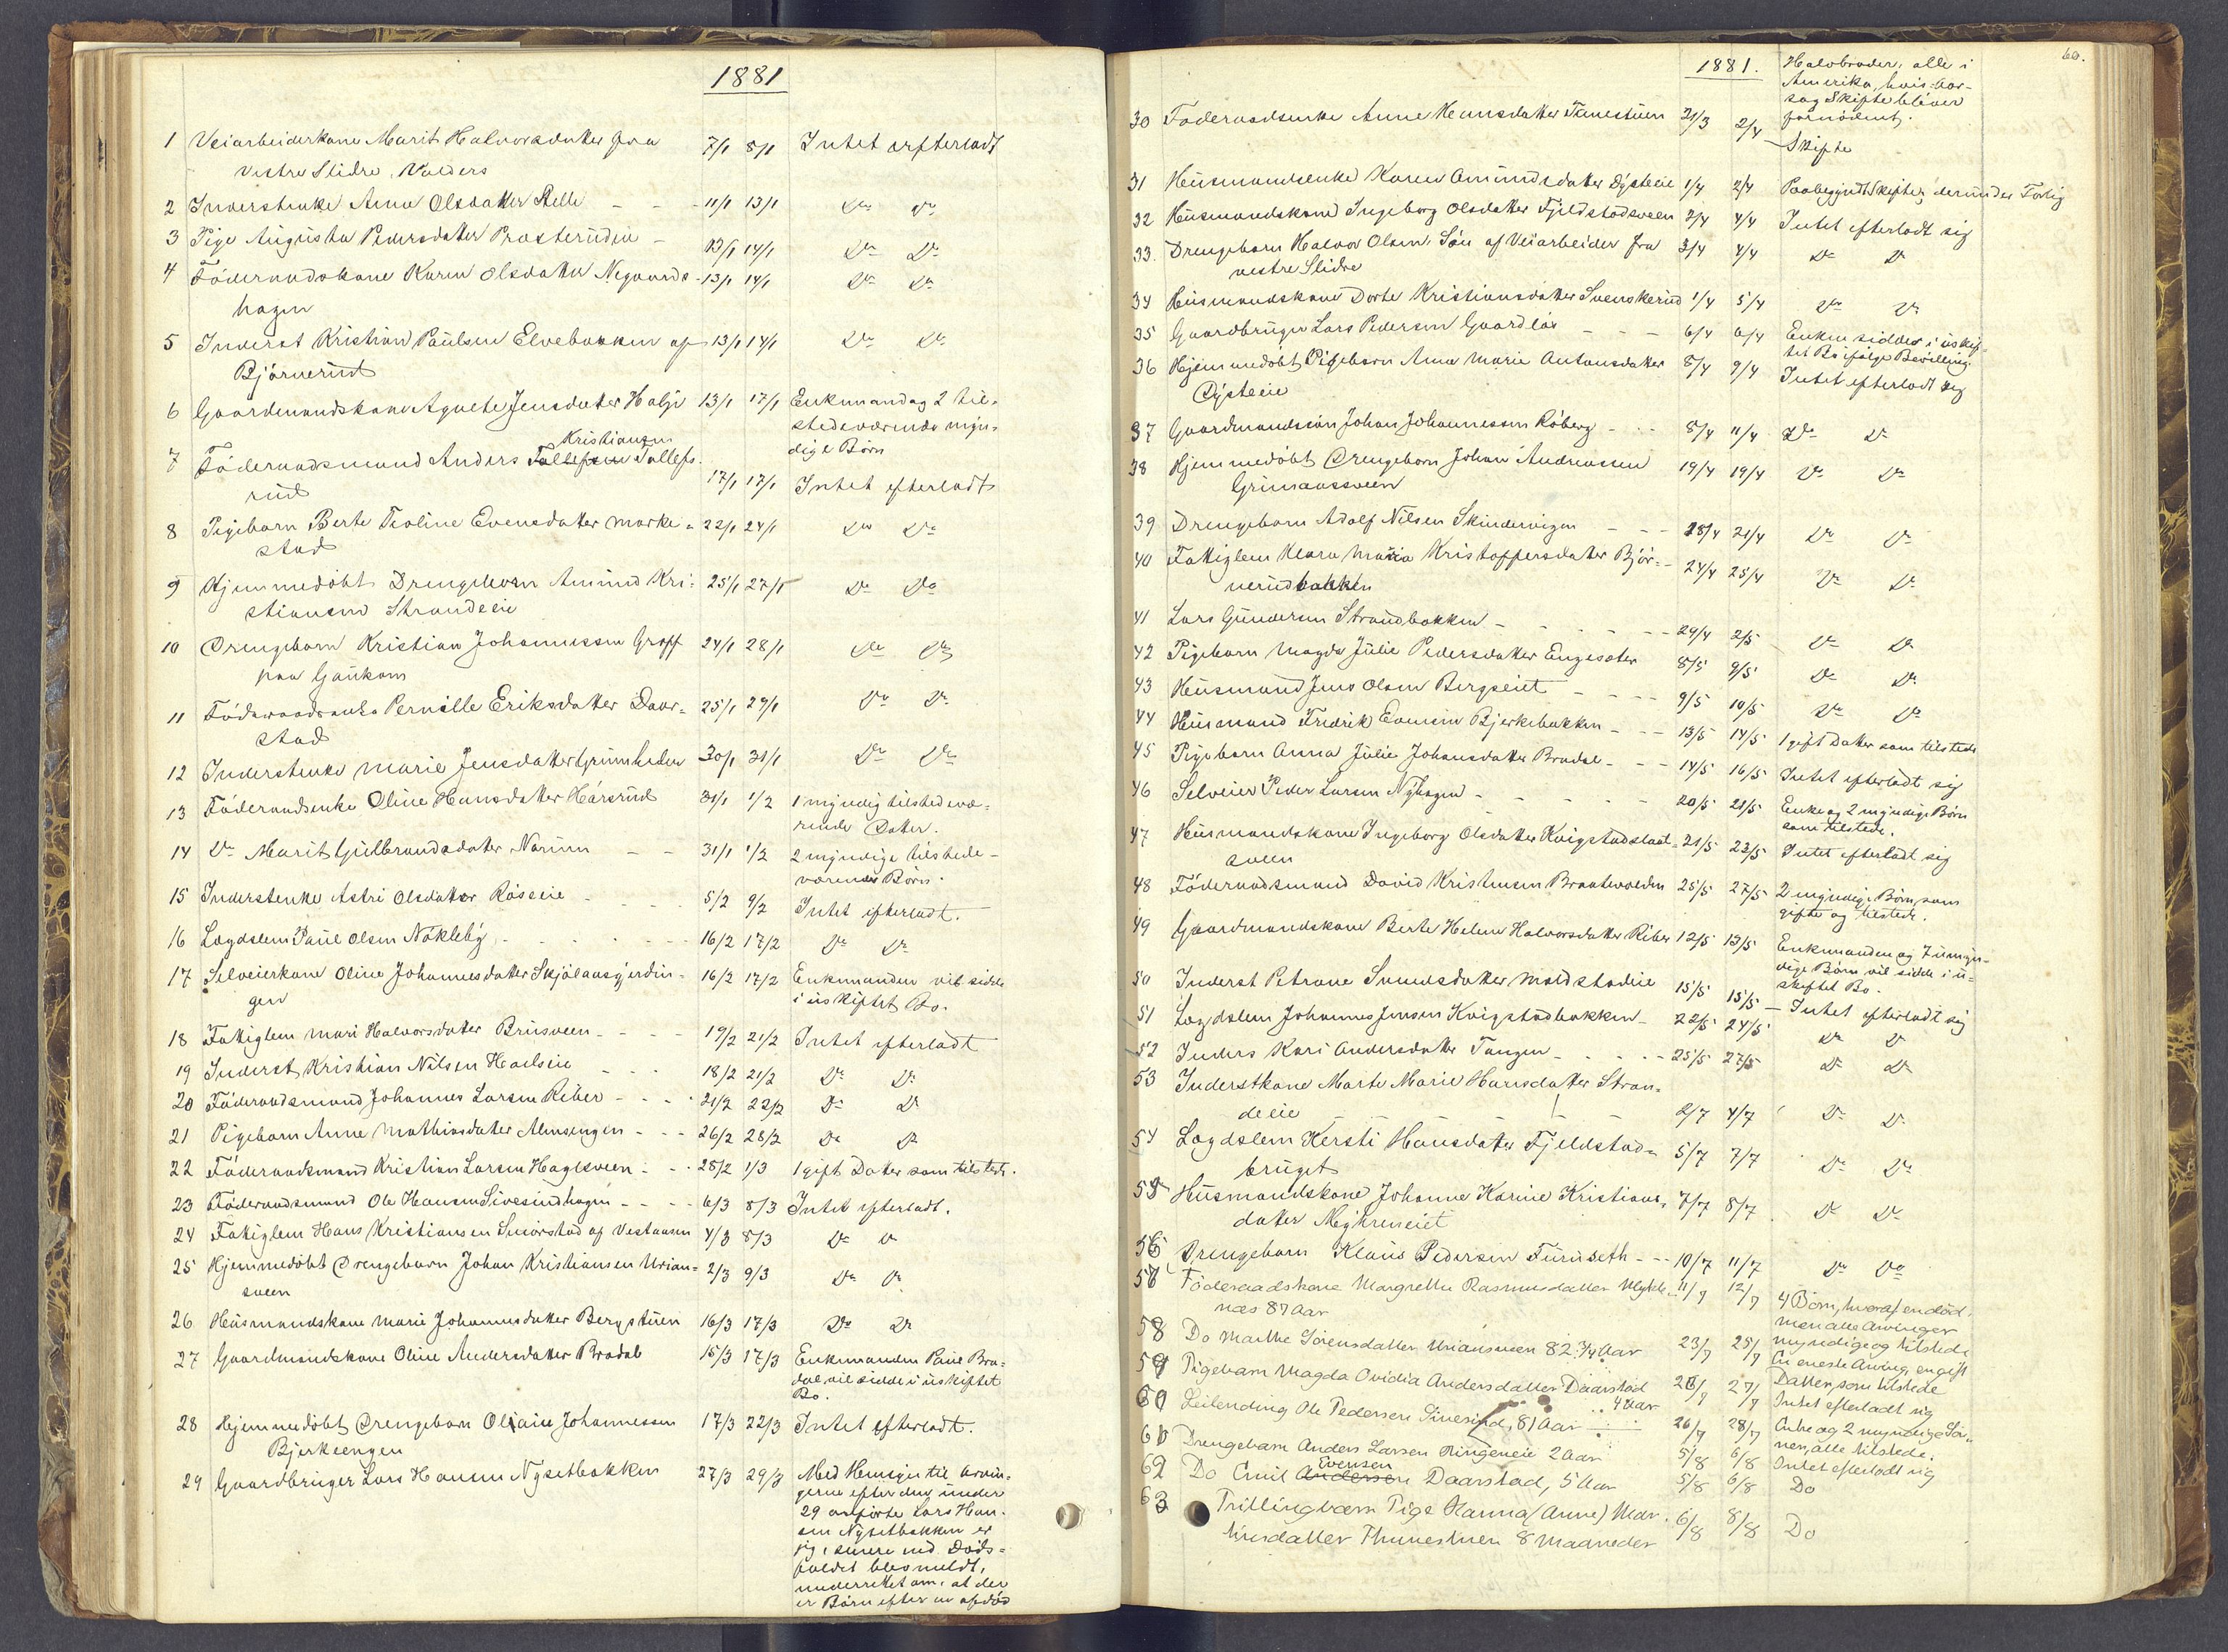 1881
1 Veiarbeiderkone Marit Halvorsdatter fra 7/1 8/1 Intet efterladt
vestre Slidre, Valders
2 Inderstenke Anne Olsdatter Stelli - - - 11/1 13/1 Do Do
3 Pige Augusta Pedersdatter Prosterudeie - 13/1 14/1 Do Do
4 Föderaadskone Karen Olsdatter Nygaards- 13/1 14/1 Do Do
hagen
5 Inderst Kristian Paulsen Elvebakken af 13/1 14/1 Do Do
Björnerud
6 Gaardmandskone Agnete Jensdatter 13/1 17/1 Enkemand og 2 til-
stedeværende myn-
dige Börn
Kristiansen
7 Föderaadsmand Anders Tollefsen Tollefs-
rud 17/1 17/1 Intet efterladt
8 Pigebarn Berte Teoline Evensdatter Marke- 22/1 24/1 Do Do
stad
9 Hjemmedöbt Drengebarn Amund Kri- 25/1 27/1 Do Do
stiansen Strandeie
10 Drengebarn Kristian Johannessen Groff 24/1 28/1 Do Do
paa Gaukom
11 Föderaadsenke Pernille Eriksdatter Daar- 25/1 29/1 Do Do
stad
12 Inderstenke Marie Jensdatter Grimsheden 30/1 31/1 Do Do
13 Föderaadsenke Oline Hansdatter Hårsrud 31/1 1/2 1 myndig tilstedevæ-
rende Datter.
14 Do Marit Gulbrandsdatter Narum - - 31/1 1/2 2 myndige tilstede-
værende Börn.
15 Inderstenke Astri Olsdatter Röseeie - - - 5/2 9/2 Intet efterladt.
16 Lægdslem Paul Olsen Nökleby - - - - 16/2 17/2 Do Do
17 Selveierkone Oline Johannesdatter Skjölaasgjerdin- 16/2 17/2 Enkemanden vil sidde
gen i uskiftet Bo.
18 Fattiglem Mari Halvorsdatter Brusveen - - - 19/2 21/2 Intet efterladt
19 Inderst Kristian Nilsen Haelseie - - - 18/2 21/2 Do Do
20 Föderaadsmand Johannes Larsen Riber - - - 21/2 22/2 Do Do
21 Pigebarn Anne Mathiasdatter Almsengen - - - 26/2 28/2 Do Do
22 Föderaadsmand Kristian Larsen Haglsveen - - 28/2 1/3 1 gift Datter som tilstede.
23 Föderaadsmand Ole Hansen Sivesindhagen - - - 6/3 8/3 Intet efterladt.
24 Fattiglem Hans Kristiansen Smörstad af Vestaasen 4/3 8/3 Do Do
25 Hjemmedöbt Drengebarn Johan Kristiansen Urian- 2/3 9/3 Do Do
sveen
26 Husmandskone Marie Johannesdatter Bergstuen 16/3 17/3 Do Do
27 Gaardmandskone Oline Andersdatter Bradal 15/3 17/3 Enkemanden Paul Bra-
dal vil sidde i uskiftet
Bo.
28 Hjemmedöbt Drengebarn Olaine Johannessen 17/3 22/3 Intet efterladt.
Bjerkeengen
29 Gaardbruger Lars Hansen Nysetbakken 27/3 29/3 Med Hensyn til Arvin-
gerne efter den under
29 anförte Lars Han-
sen Nysetbakken er
jeg, senere end Döds-
faldet blev meldt,
underrettet om, at der
er Börn efter en afdöd
60.
1881. Halvbroder, alle i
Amerika, hvis-aar-
sag Skifte bliver
fornödent.
30 Föderaadsenke Anne Hansdatter Tunestuen 31/3 2/4 Skifte
31 Husmandsenke Karen Amundsdatter Dysteeie 1/4 2/4 Paabegyndt Skifte, derunder Forlig
32 Husmandskone Ingeborg Olsdatter Fjeldstadsveen 2/4 4/4 Intet efterladt sig
33. Drengebarn Halvor Olsen, Sön af Veiarbeider fra 3/4 4/4 Do Do
vestre Slidre
34 Husmandskone Dorte Kristiansdatter Svenskerud 1/4 5/4 Do Do
35 Gaardbruger Lars Pedersen Gaardlös - - - 6/4 6/4 Enken sidder i uskif-
tet Bo ifölge Bevilling.
36 Hjemmedöbt Pigebarn Anne Marie Antonsdatter 8/4 9/4 Intet efterladt sig
Dysteeie
37 Gaardmandssön Johan Johannessen Röberg - - - 8/4 11/4 Do Do
38 Hjemmedöbt Drengebarn Johan Andreassen 19/4 19/4 Do Do
Grimaassveen
39 Drengebarn Adolf Nilsen Skindervigen - - - 18/4 21/4 Do Do
40 Fattiglem Klara Maria Kristoffersdatter Björ- 24/4 25/4 Do Do
nerudbakken
41 Lars Gundersen Strandbakken - - - - - 29/4 2/5 Do Do
42 Pigebarn Magda Julie Pedersdatter Engesæter 8/5 9/5 Do Do
43 Husmand Jens Olsen Bergseiet - - - - 9/5 10/5 Do Do
44 Husmand Fredrik Evensen Bjerkebakken - - - 13/5 14/5 1 gift Datter som tilstede
45 Pigebarn Anna Julie Johansdatter Bradal - - - 14/5 16/5 Intet efterladt sig
46 Selveier Peder Larsen Nyhagen - - - - - 20/5 21/5 Enke og 2 myndige Börn
som tilstede.
47 Husmandskone Ingeborg Olsdatter Kvigstadslaat- 21/5 23/5 Intet efterladt sig
sveen
48 Föderaadsmand David Kristensen Braatevolden 25/5 27/5 2 myndige Börn, som
gifte og tilstede.
49 Gaardmandskone Berte Helene Halvorsdatter Riber 12/5 13/5 Enkemanden og 7 umyn-
dige Börn vil sidde i u-
skiftet Bo.
50 Inderst Petrone Svendsdatter Moldstadeie 15/5 15/5 - Intet efterladt sig
51 Lægdslem Johannes Jensen Kvigstadbakken - 22/5 24/5 Do Do
52 Inders Kari Andersdatter Tangen - - - - 25/5 27/5 Do Do
53 Inderstkone Marte Marie Hansdatter Stran-
deeie - - - - - 2/7 4/7 Do Do
54 Lægdslem Kersti Hansdatter Fjeldstad- 5/7 7/7 Do Do
bruget
55 Husmandskone Johanne Karine Kristians- 7/7 8/7 Do Do
datter Myhreneiet
56 Drengebarn Klaus Pedersen Furuseth - - - 10/7 11/7 Do Do
57 Föderaadskone Margrethe Rasmusdatter Mykle- 11/7 12/7 4 Börn, hvoraf en död,
næs 87 Aar men alle Arvinger
myndige og tilstede
58 Do Marthe Sörensdatter Uriansveen 82 3/4 Aar 23/7 25/7 En eneste Arving, en gift
Datter, som tilstede
59 Pigebarn Magda Ovidia Andersdatter Daarstad 26/7 27/7 Intet efterladt sig
4 Aar
60 Leilending Ole Pedersen Sivesind, 81 Aar 26/7 28/7 Enke og 2 myndige Sön-
ner, alle tilstede.
61 Drengebarn Anders Larsen Ringeneie 2 Aar 5/8 6/8 Intet efterladt sig
Evensen
62 Do Emil Andersen Daarstad, 5 Aar 5/8 6/8 Do
63 Trillingbarn Pige Hanna (Anne) Mar- 6/8 8/8 Do
tinsdatter Thunestuen 8 Maaneder